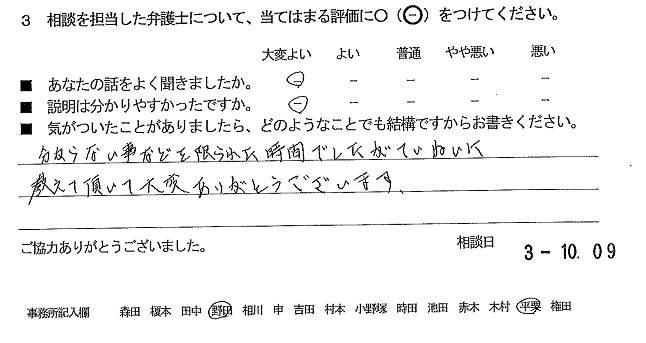 3 相談を担当した弁護士について、当てはまる評価に○(⊖)をつけてください。
大変よい よい 普通 やや悪い 悪い
■ あなたの話をよく聞きましたか。 − − − − −
■ 説明は分かりやすかったですか。 − − − − −
■ 気がついたことがありましたら、どのようなことでも結構ですからお書きください。
分からない事などを限られた時間でしたがていねいに
教えて頂いて大変ありがとうございます。
ご協力ありがとうございました。 相談日 3-10.09
事務所記入欄 森田 榎本 田中 野田 相川 申 吉田 村本 小野塚 時田 池田 赤木 木村 平栗 権田